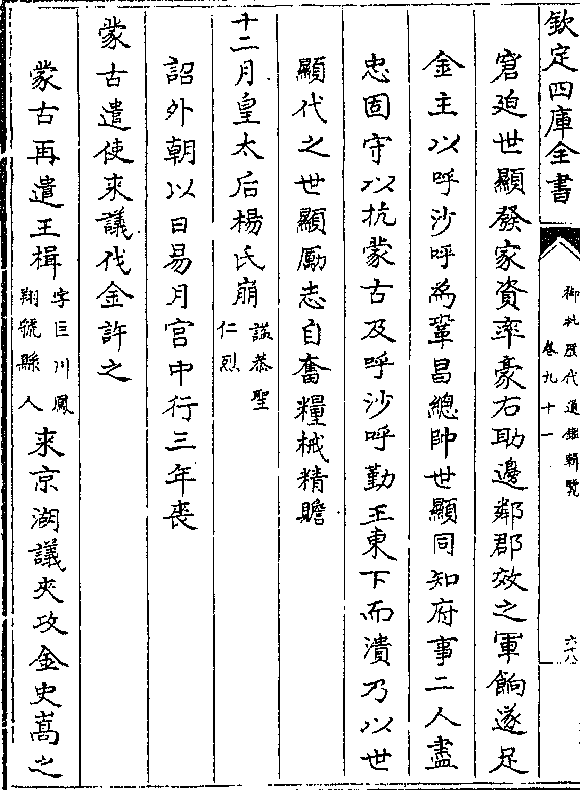 欽定四庫全書
御批歷代通鑑輯覽
卷九十一
六十八
窘迫世顯發家資率豪右助邊鄰郡效之軍餉遂足
金主以呼沙呼為鞏昌總帥世顯同知府事二人盡
忠固守以抗蒙古及呼沙呼勤王東下而潰乃以世
顯代之世顯勵志自奮糧械精贍
十二月皇太后楊氏崩諡恭聖仁烈
詔外朝以日易月宫中行三年喪
蒙古遣使来議伐金許之
蒙古再遣王楫字巨川鳳翔虢縣人来京湖議夾攻金史嵩之